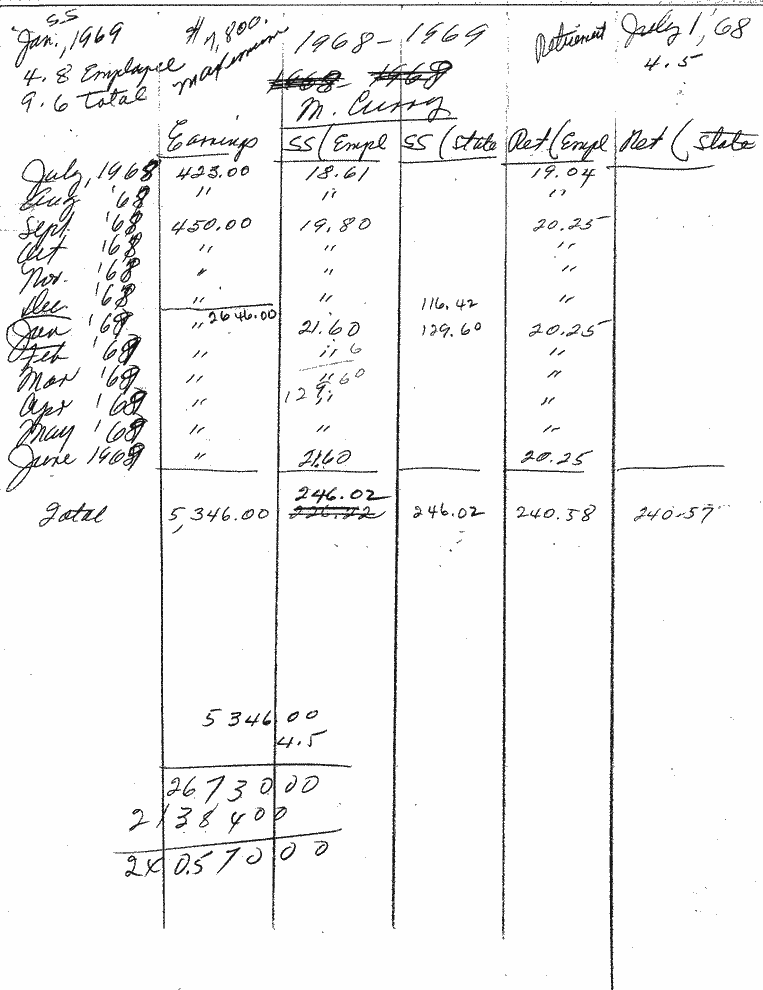 SS
Jan., 1969
4.8 Employee
9.6 Total
$7,800.
Maximum
1968-1969
1968- 1968
M. Curry
Retirement July 1, 68
4.5
Earnings SS (Empl SS (State Ret (Empl Ret (State
July, 1968 423.00 18.61 19.04
Aug '68 " " "
Sept '68 450.00 19.80 20.25
Oct '68 " " "
Nov. '68 " " "
Dec '68 " " 116.42 "
2646.00
Jan '69 " 21.60 129.60 20.25
Feb '69 " " 6 "
Mar '69 " " "
129.60
Apr '69 " " "
May '69 " " "
June 1969 " 21.60 20.25
246.02
Total 5,346.00 226.22 246.02 240.58 240.57
5346 00
4.5
2673000
2138400
240.57000